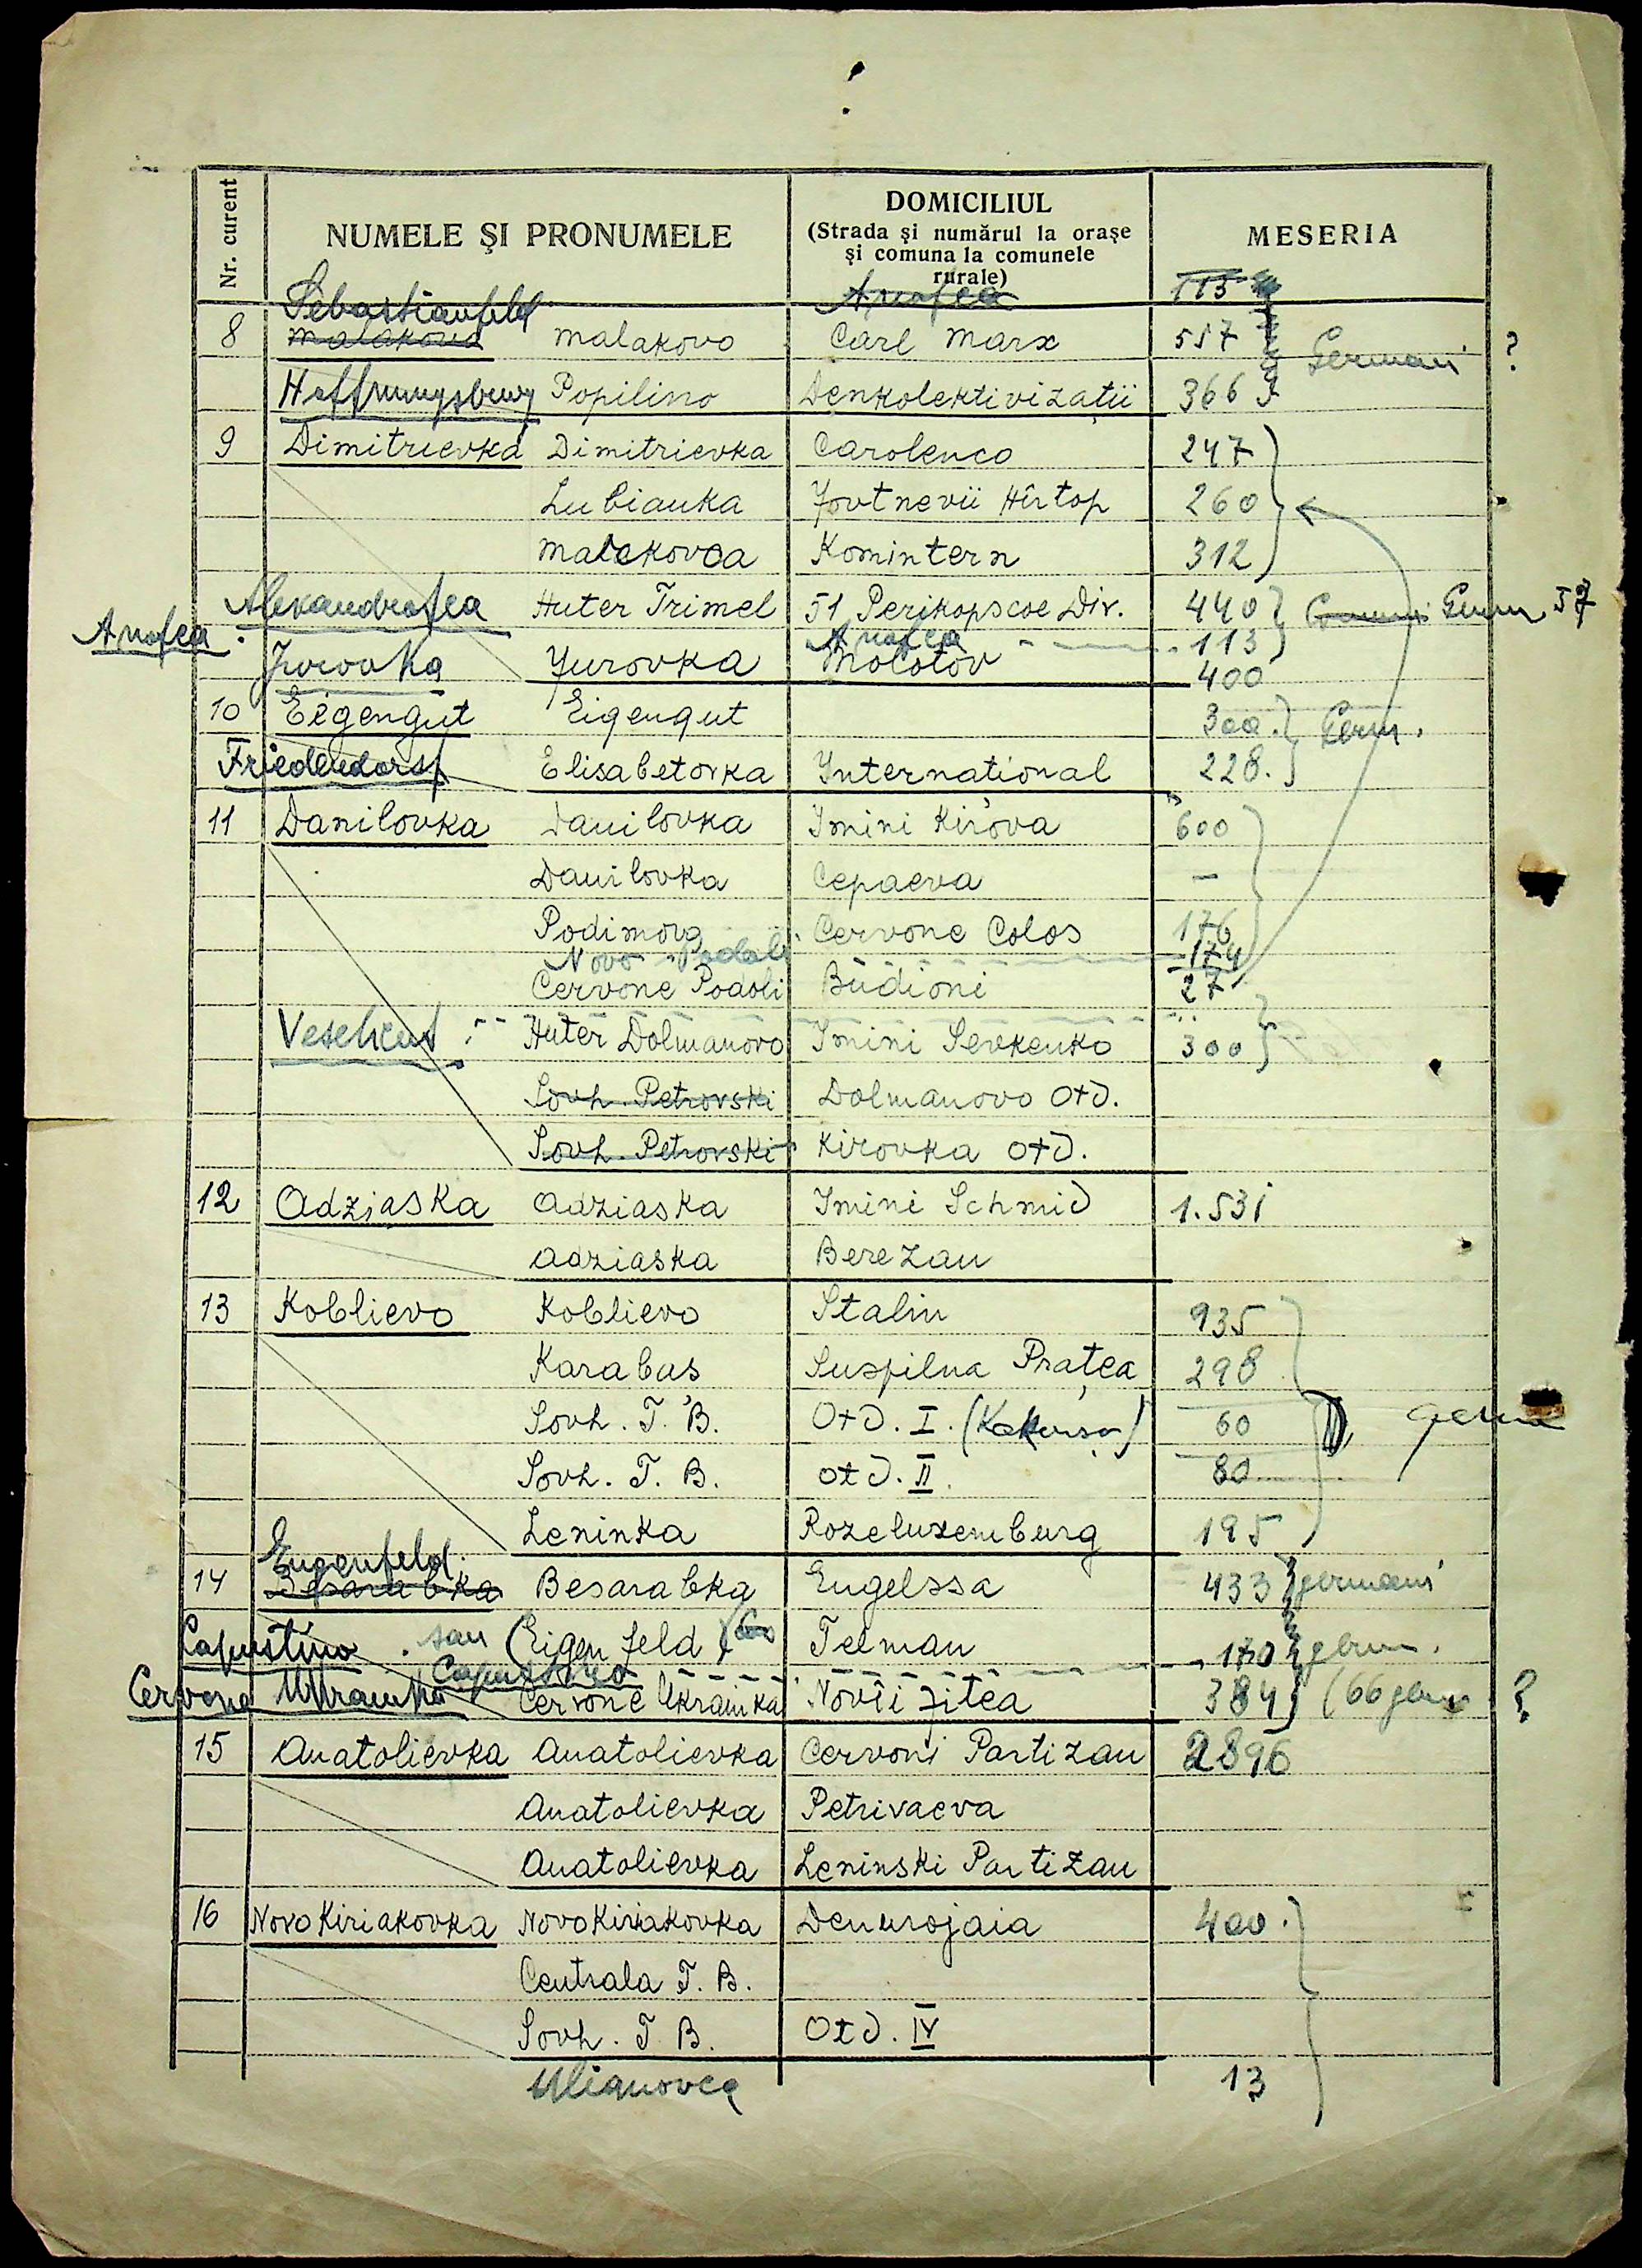 Nr. curent NUMELE ŞI PRONUMELE DOMICILIUL MESERIA
(Strada şi numărul la oraşe
şi comuna la comunele
rurale)
Sebastianfeld Anofca 113
8 Malakova Malakovo Carl Marx 557 Germani ?
Hoffnungsburg Popilino Denkolektivizaţii 366
9 Dimitrievka Dimitrievka Carolenco 247
Lubianka Jovtnevii Hîrtop 260
Malakovca Komintern 312
Alexandrofca Huter Trimel 51 Perikopscoe Div. 440 Germ 57
Anofca Anofca 113
Jurovka Yurovka Molotov 400
10 Eigengut Eigengut 300. Germ.
Friedendorf Elisabetovka International 228.
11 Danilovka Danilovka Imini Kirova 600
Danilovka Cepaeva —
Podimova Cervone Colos 176
Novo Podoli 174
Cervone Podoli Budioni 27
Veselicut : Huter Dolmanovo Imini Sevkenko 300
Sovh. Petrovski Dolmanovo Otd.
Sovh. Petrovski Kirovka Otd.
12 Adziaska Adziaska Imini Schmid 1.531
Adziaska Berezan
13 Koblievo Koblievo Stalin 935
Karabas Suspilna Praţea 298
Sovh. T. B. Otd. I. 60 germ
Sovh. T. B. Otd. II. 80
Leninka Rozeluxemburg 195
Eugenfeld.
14 Besarabka Besarabka Engelssa 433 germani
Capustino . sau (Eigenfeld) Telman 170 germ.
Capustino
Cervone Ukrainka Cervone Ukrainka Novîi jitea 384 (66 germ ?
15 Anatolievka Anatolievka Cervoni Partizan 2896
Anatolievka Petrivaeva
Anatolievka Leninski Partizan
16 NovoKiriakovka NovoKiriakovka Denurojaia 400.
Centrala T. B.
Sovh. T. B. Otd. IV
Ulianovca 13